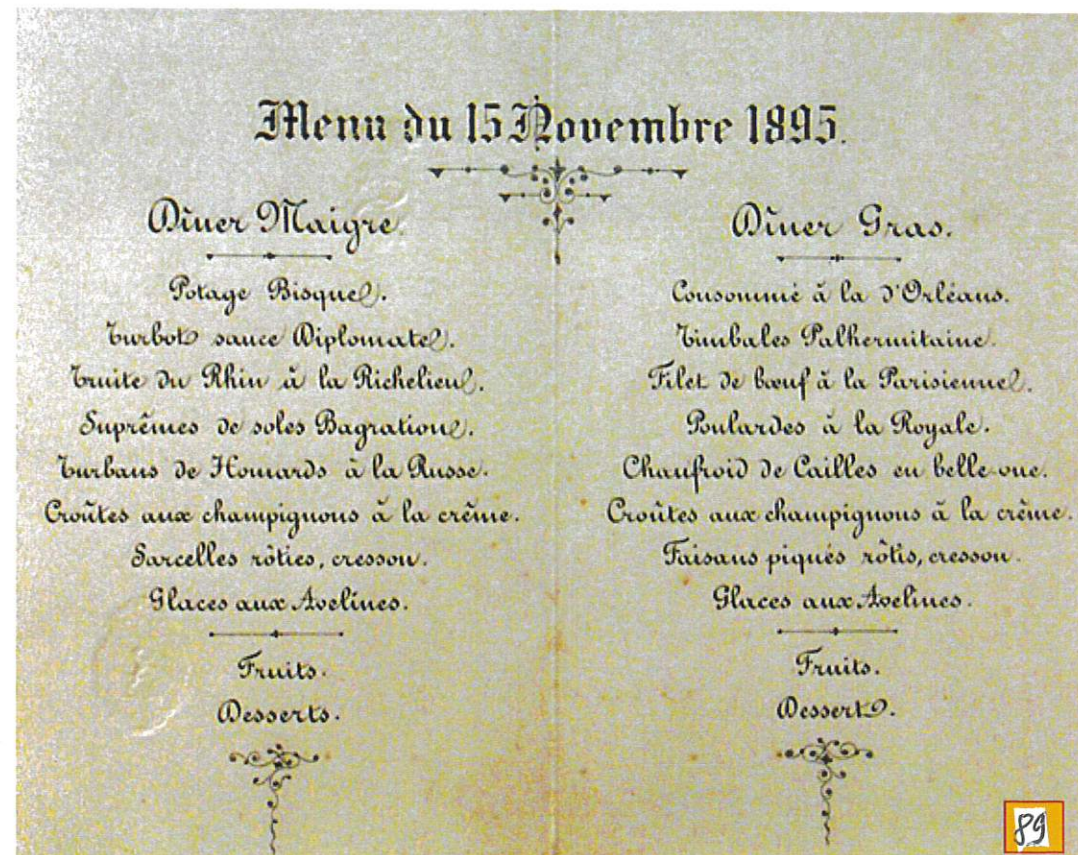 Menu du 15 Novembre 1895.
Dîner Maigre.
Potage Bisque.
Turbot sauce Diplomate.
Truite du Rhin à la Richelieu.
Suprêmes de soles Bagration.
Turbans de Homards à la Russe.
Croûtes aux champignons à la crême.
Sarcelles rôties, cresson.
Glaces aux Avelines.
Fruits.
Desserts.
Dîner Gras.
Consommé à la d'Orléans.
Timbales Palhermitaine.
Filet de bœuf à la Parisienne.
Poulardes à la Royale.
Chaufroid de Cailles en belle-vue.
Croûtes aux champignons à la crème.
Faisans piqués rôtis, cresson.
Glaces aux Avelines.
Fruits.
Dessert.
89